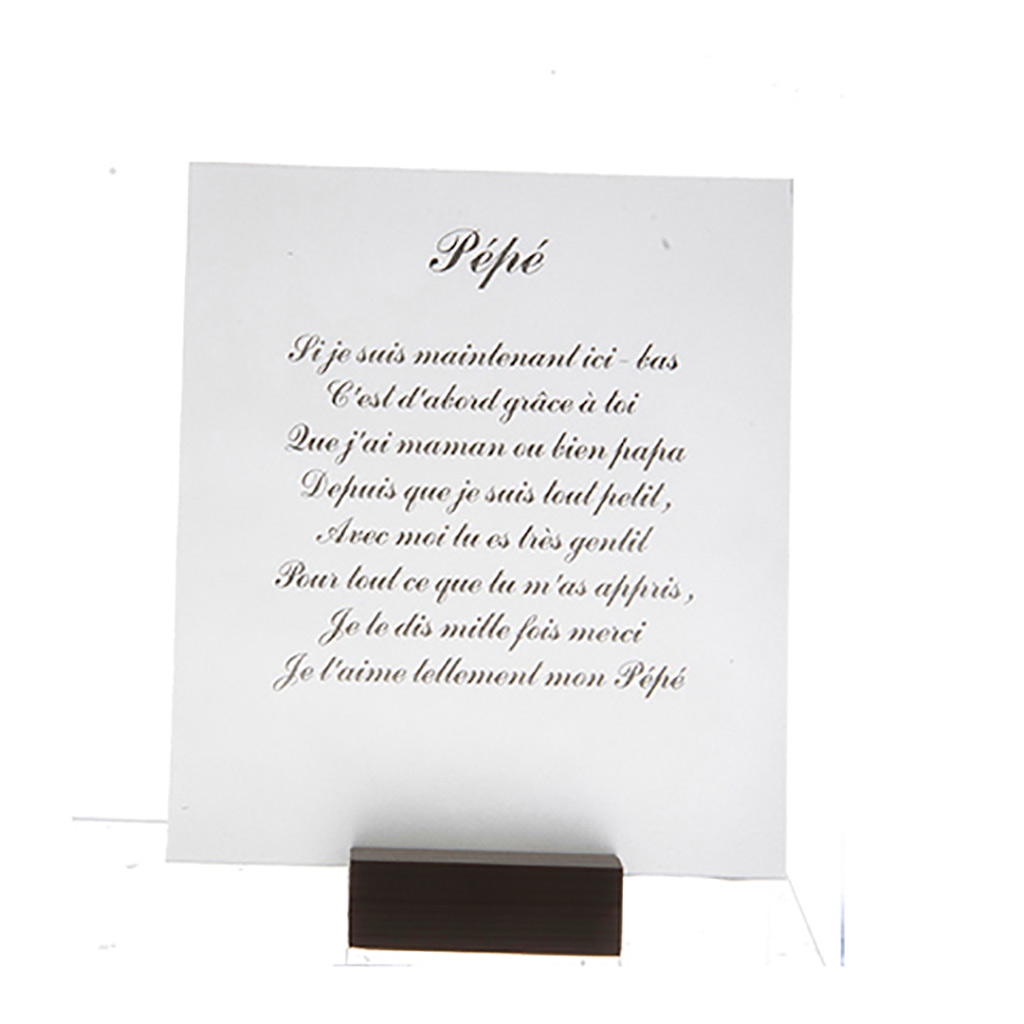 Pépé
Si je suis maintenant ici - bas
C'est d'abord grâce à toi
Que j'ai maman ou bien papa
Depuis que je suis tout petit,
Avec moi tu es très gentil
Pour tout ce que tu m'as appris,
Je te dis mille fois merci
Je t'aime tellement mon Pépé